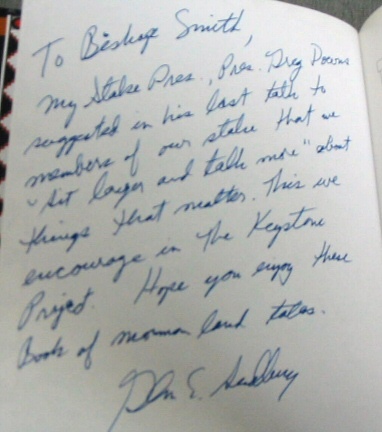 To Bishop Smith,
My Stake Pres., Pres. Greg Downs
suggested in his last talk to
members of our stake that we
"sit longer and talk more" about
things that matter. This we
encourage in The Keystone
Project. Hope you enjoy these
Book of mormon land tales.